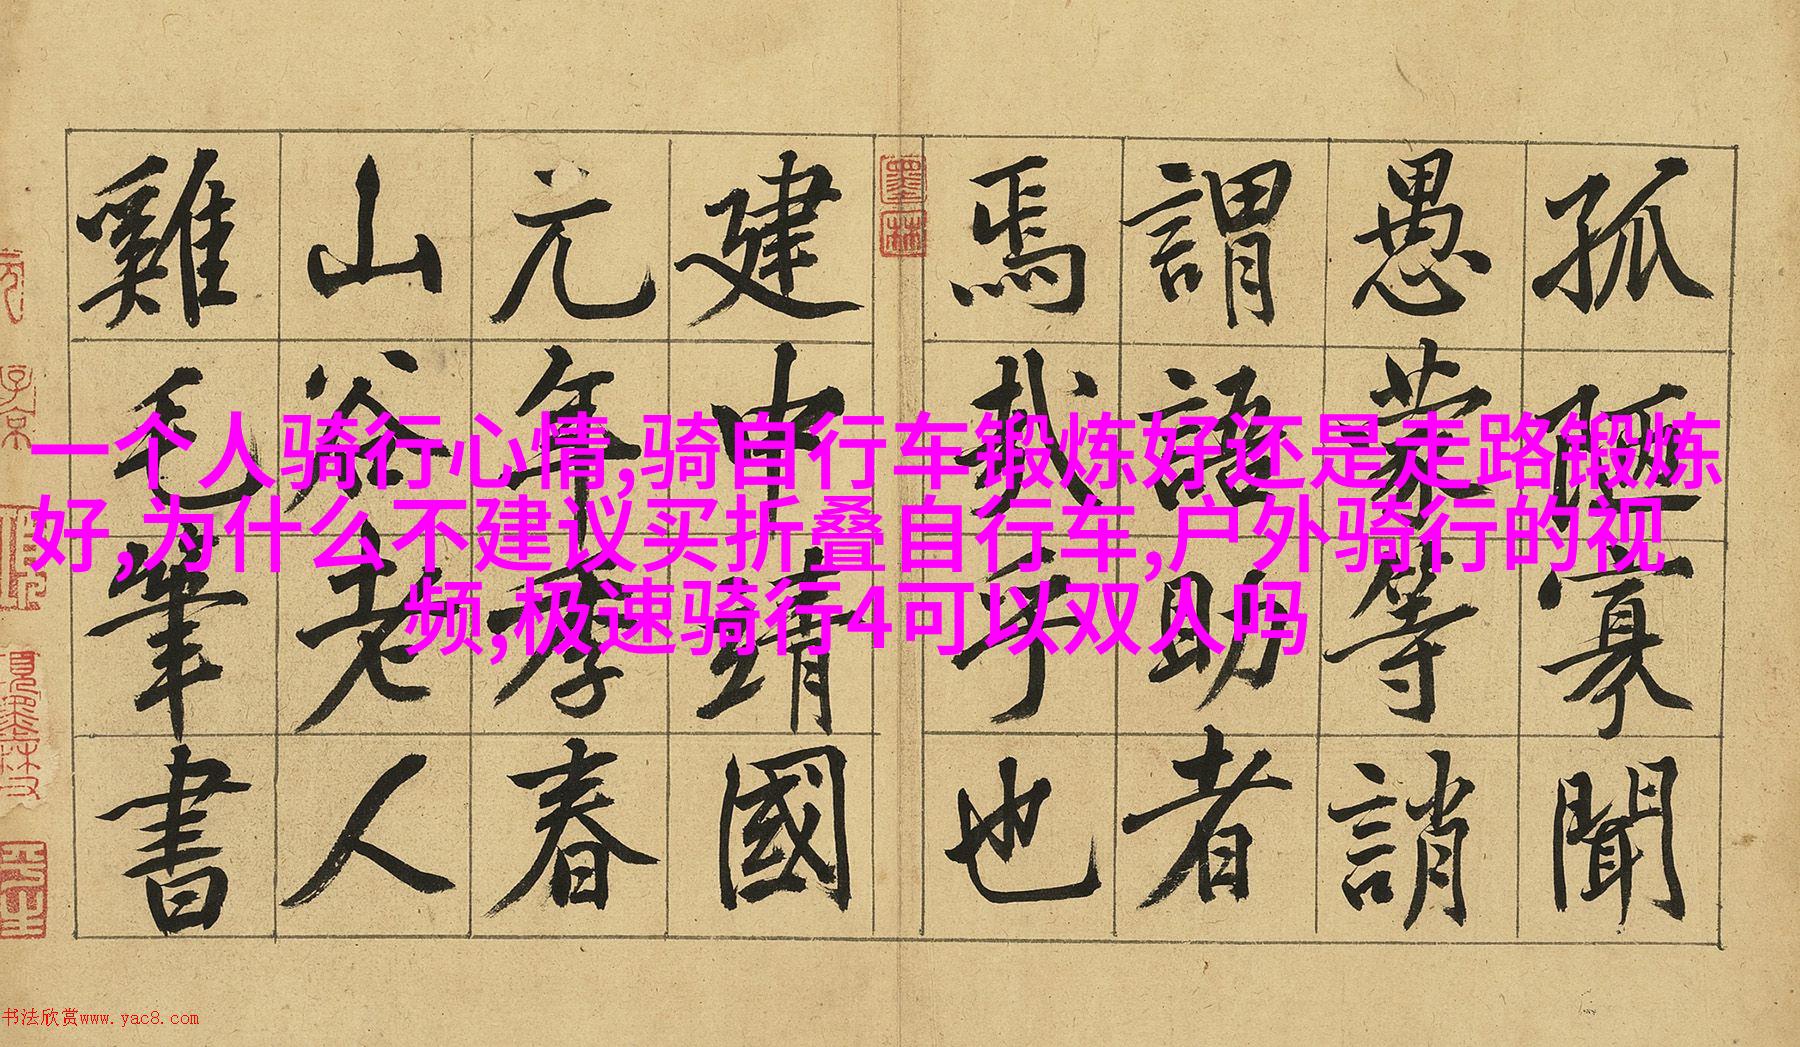 孤陋寡聞
愚蒙等誚
謂語助者
焉哉乎也
建中靖國
元年季春
山谷老人
雞毛筆書
墨林
一个人骑行心情,骑自行车锻炼好还是走路锻炼
好,为什么不建议买折叠自行车,户外骑行的视
频,极速骑行4可以双人吗
书法欣赏www.yac8.com